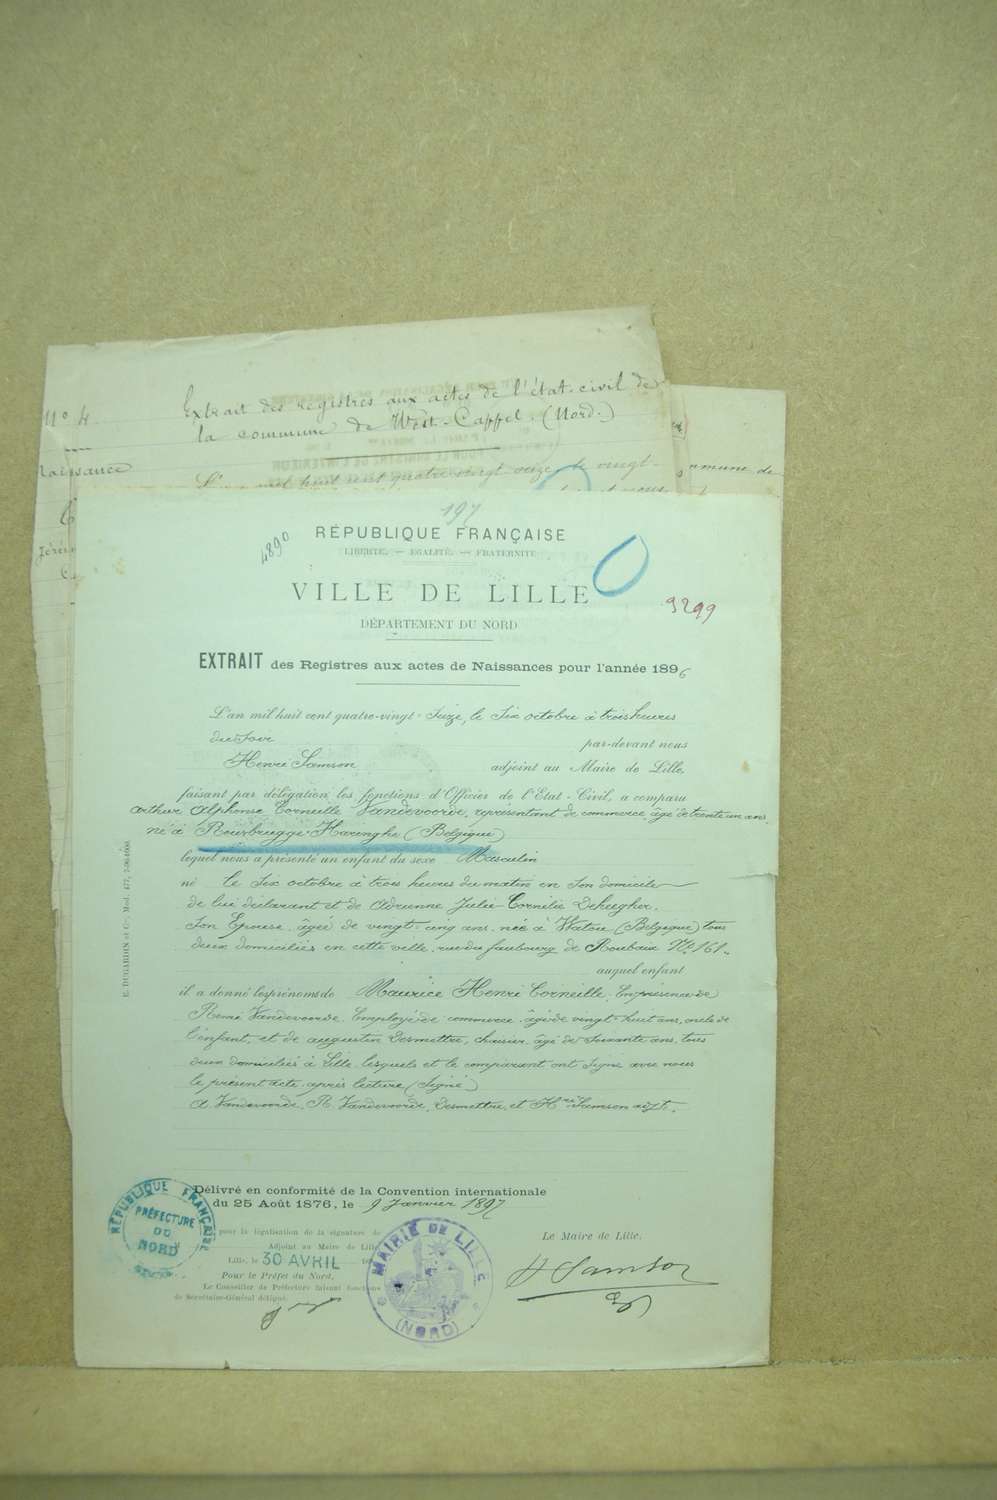 N° 4
Extrait des registres aux actes de l'état-civil de
la commune de West-Cappel. (Nord.)
Naissance
L'an mil huit cent quatre-vingt onze, le vingt-
commune de
197
4890
RÉPUBLIQUE FRANÇAISE
LIBERTÉ. — EGALITÉ. — FRATERNITÉ
VILLE DE LILLE
9299
DÉPARTEMENT DU NORD
EXTRAIT des Registres aux actes de Naissances pour l'année 1896
L'an mil huit cent quatre-vingt-Seize, le Six octobre à trois heures
du Soir par-devant nous
Henri Samson adjoint au Maire de Lille,
faisant par délégation les fonctions d'Officier de l'Etat-Civil, a comparu
Arthur Alphonse Corneille Vandevoorde, représentant de commerce, âgé de trente un ans
né à Rousbrugge-Haringhe (Belgique)
lequel nous a présenté un enfant du sexe Masculin
né le Six octobre à trois heures du matin en Son domicile
de lui déclarant et de Adrienne Julie Cornélie Deheegher,
Son Epouse, âgée de vingt-cinq ans, née à Watou (Belgique) tous
deux domiciliés en cette ville, rue du faubourg de Roubaix N° 161.
auquel enfant
il a donné les prénoms de Maurice Henri Corneille. En présence de
René Vandevoorde, Employé de commerce, âgé de vingt-huit ans, oncle de
l'enfant, et de augustin Desmettre, chaisier, âgé de Soixante ans, tous
deux domiciliés à Lille, lesquels et le comparant ont Signé avec nous
le présent acte, après lecture (Signé)
A Vandevoorde, R. Vandevoorde, Desmettre, et Hri Samson adjt.
E. DUGARDIN et Cie, Mod. 477,
Délivré en conformité de la Convention internationale
du 25 Août 1876, le 9 Janvier 1897
RÉPUBLIQUE FRANÇAISE
PRÉFECTURE
DU
NORD
pour la légalisation de la signature de
Adjoint au Maire de Lille
Lille, le 30 AVRIL
Pour le Préfet du Nord,
Le Conseiller de Préfecture faisant fonctions
de Secrétaire-Général délégué.
MAIRIE DE LILLE
(NORD)
Le Maire de Lille,
H Samson